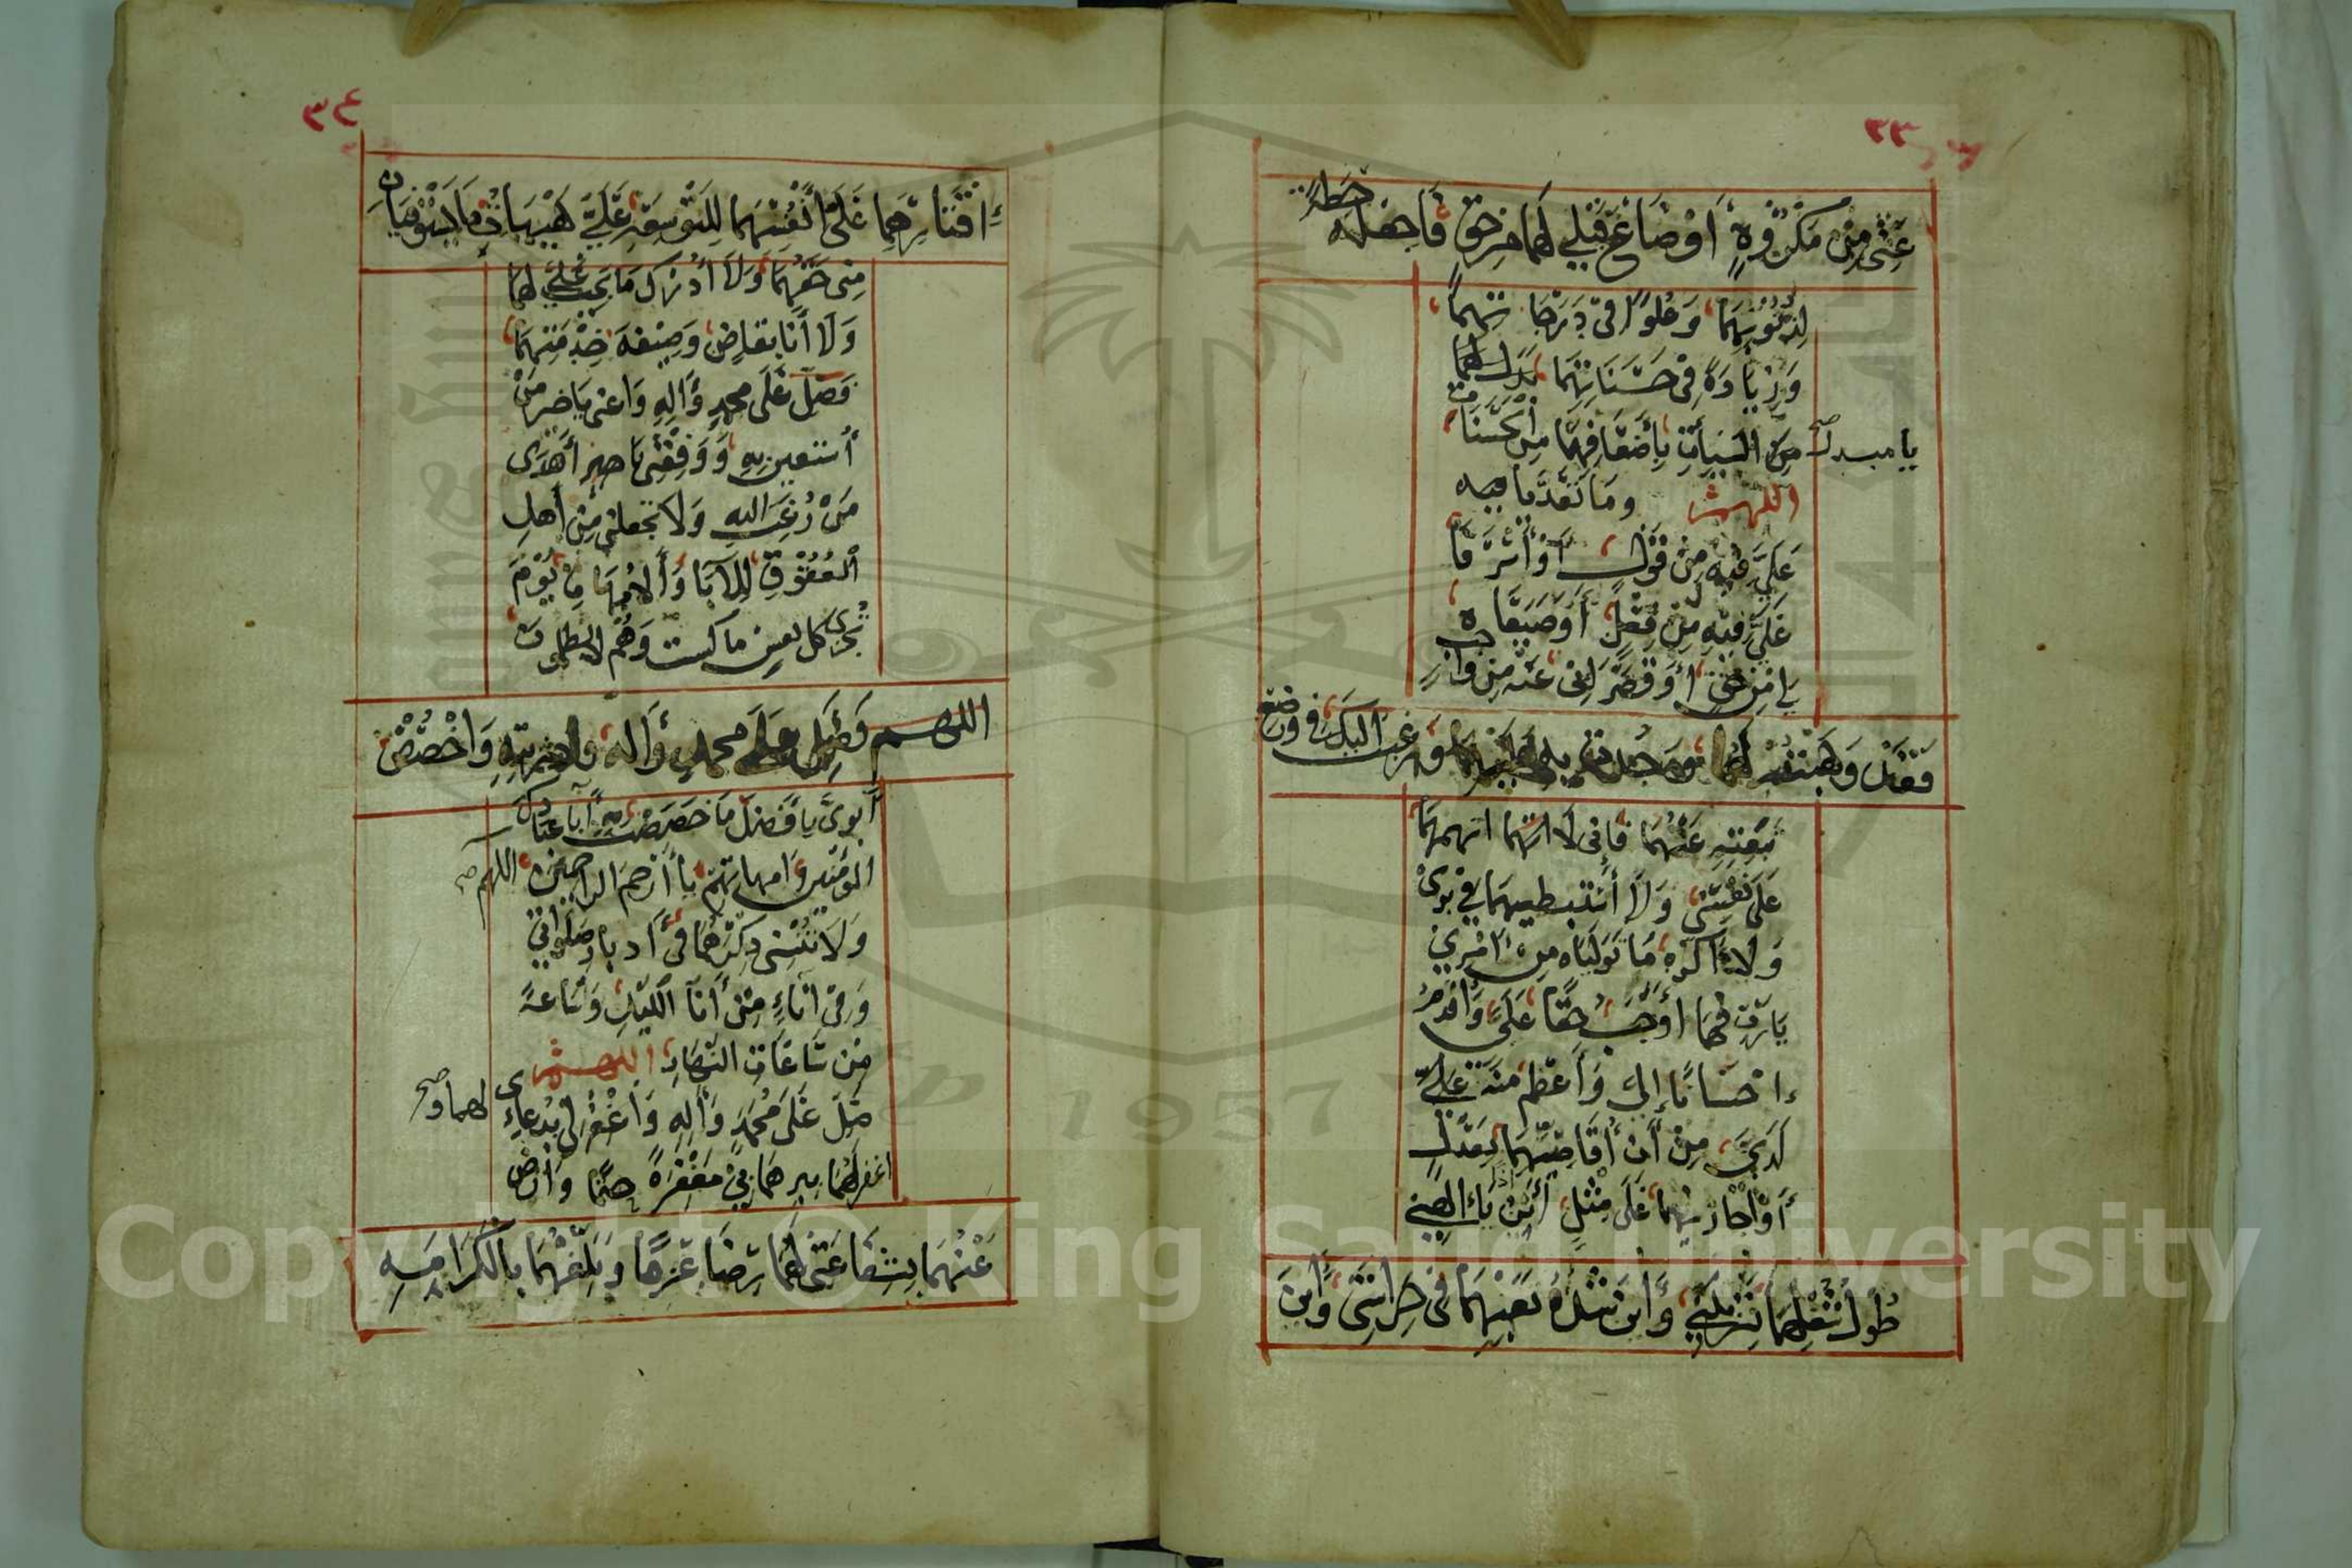 ٣٣
عَنِّي مِنْ مَكْرُوهٍ أَوْ ضَاعَ قِبَلِي لَهُمَا مِنْ حَقٍّ فَاجْعَلْهُ حِطَّةً
لِذُنُوبِهِمَا وَعُلُوًّا فِي دَرَجَاتِهِمَا
وَزِيَادَةً فِي حَسَنَاتِهِمَا
يا مبدل صح
مِنَ السَّيِّئَاتِ بِأَضْعَافِهَا مِنَ الْحَسَنَاتِ
اللهم وَمَا تَعَدَّيَا فيه
عَلَيَّ فِيهِ مِنْ قَوْلٍ أَوْ أَسْرَفَا
عَلَيَّ فِيهِ مِنْ فِعْلٍ أَوْ ضَيَّعَاهُ
لِي مِنْ حَقٍّ أَوْ قَصَّرَا بِي عَنْهُ مِنْ وَاجِبٍ
فَقَدْ وَهَبْتُهُ لَهُمَا وَجُدْتُ بِهِ عَلَيْهِمَا وَرَغِبْتُ إِلَيْكَ فِي وَضْعِ
تَبِعَتِهِ عَنْهُمَا فَإِنِّي لَا أَتَّهِمُهُمَا
عَلَى نَفْسِي وَلَا أَسْتَبْطِيهِمَا فِي بِرِّي
وَلَا أَكْرَهُ مَا تَوَلَّيَاهُ مِنْ أَمْرِي
يَا رَبِّ فَهُمَا أَوْجَبُ حَقًّا عَلَيَّ وَأَقْدَمُ
إِحْسَانًا إِلَيَّ وَأَعْظَمُ مِنَّةً عَلَيَّ
لَدَيَّ مِنْ أَنْ أُقَاصَّهُمَا بِعَدْلٍ
أَوْ أُجَازِيَهُمَا عَلَى مِثْلٍ أَيْنَ إِذًا يَا إِلَهِي
طُولُ شُغْلِهِمَا بِتَرْبِيَتِي وَأَيْنَ شِدَّةُ تَعَبِهِمَا فِي حِرَاسَتِي وَأَيْنَ
٣٤
إِقْتَارُهُمَا عَلَى أَنْفُسِهِمَا لِلتَّوْسِعَةِ عَلَيَّ هَيْهَاتَ مَا يَسْتَوْفِيَانِ
مِنِّي حَقَّهُمَا وَلَا أُدْرِكُ مَا يَجِبُ عَلَيَّ لَهُمَا
وَلَا أَنَا بِقَاضٍ وَظِيفَةَ خِدْمَتِهِمَا
فَصَلِّ عَلَى مُحَمَّدٍ وَآلِهِ وَأَعِنِّي يَا خَيْرَ مَنِ
اسْتُعِينَ بِهِ وَوَفِّقْنِي يَا أَهْدَى
مَنْ رُغِبَ إِلَيْهِ وَلَا تَجْعَلْنِي مِنْ أَهْلِ
الْعُقُوقِ لِلْآبَا وَالْأُمَّهَاتِ يَوْمَ
تُجْزَى كُلُّ نَفْسٍ مَا كَسَبَتْ وَهُمْ لَا يُظْلَمُونَ
اللهم صَلِّ عَلَى مُحَمَّدٍ وَآلِهِ وَذُرِّيَّتِهِ وَاخْصُصْ
أَبَوَيَّ بِأَفْضَلِ مَا خَصَصْتَ بِهِ آبَا عِبَادِكَ
الْمُؤْمِنِينَ وَأُمَّهَاتِهِمْ يَا أَرْحَمَ الرَّاحِمِينَ اللهم صح
وَلَا تُنْسِنِي ذِكْرَهُمَا فِي أَدْبَارِ صَلَوَاتِي
وَفِي آنَاءٍ مِنْ آنَا اللَّيْلِ وَسَاعَةٍ
مِنْ سَاعَاتِ النَّهَارِ اللهم
صَلِّ عَلَى مُحَمَّدٍ وَآلِهِ وَاغْفِرْ لِي بِدُعَائِي لهما و صح
اغْفِرْ لَهُمَا بِبِرِّهِمَا بِي مَغْفِرَةً حَتْمًا وَارْضَ
عَنْهُمَا بِشَفَاعَتِي لَهُمَا رِضًا عَزْمًا وَبَلِّغْهُمَا بِالْكَرَامَةِ
Copyright © King Saud University
1957